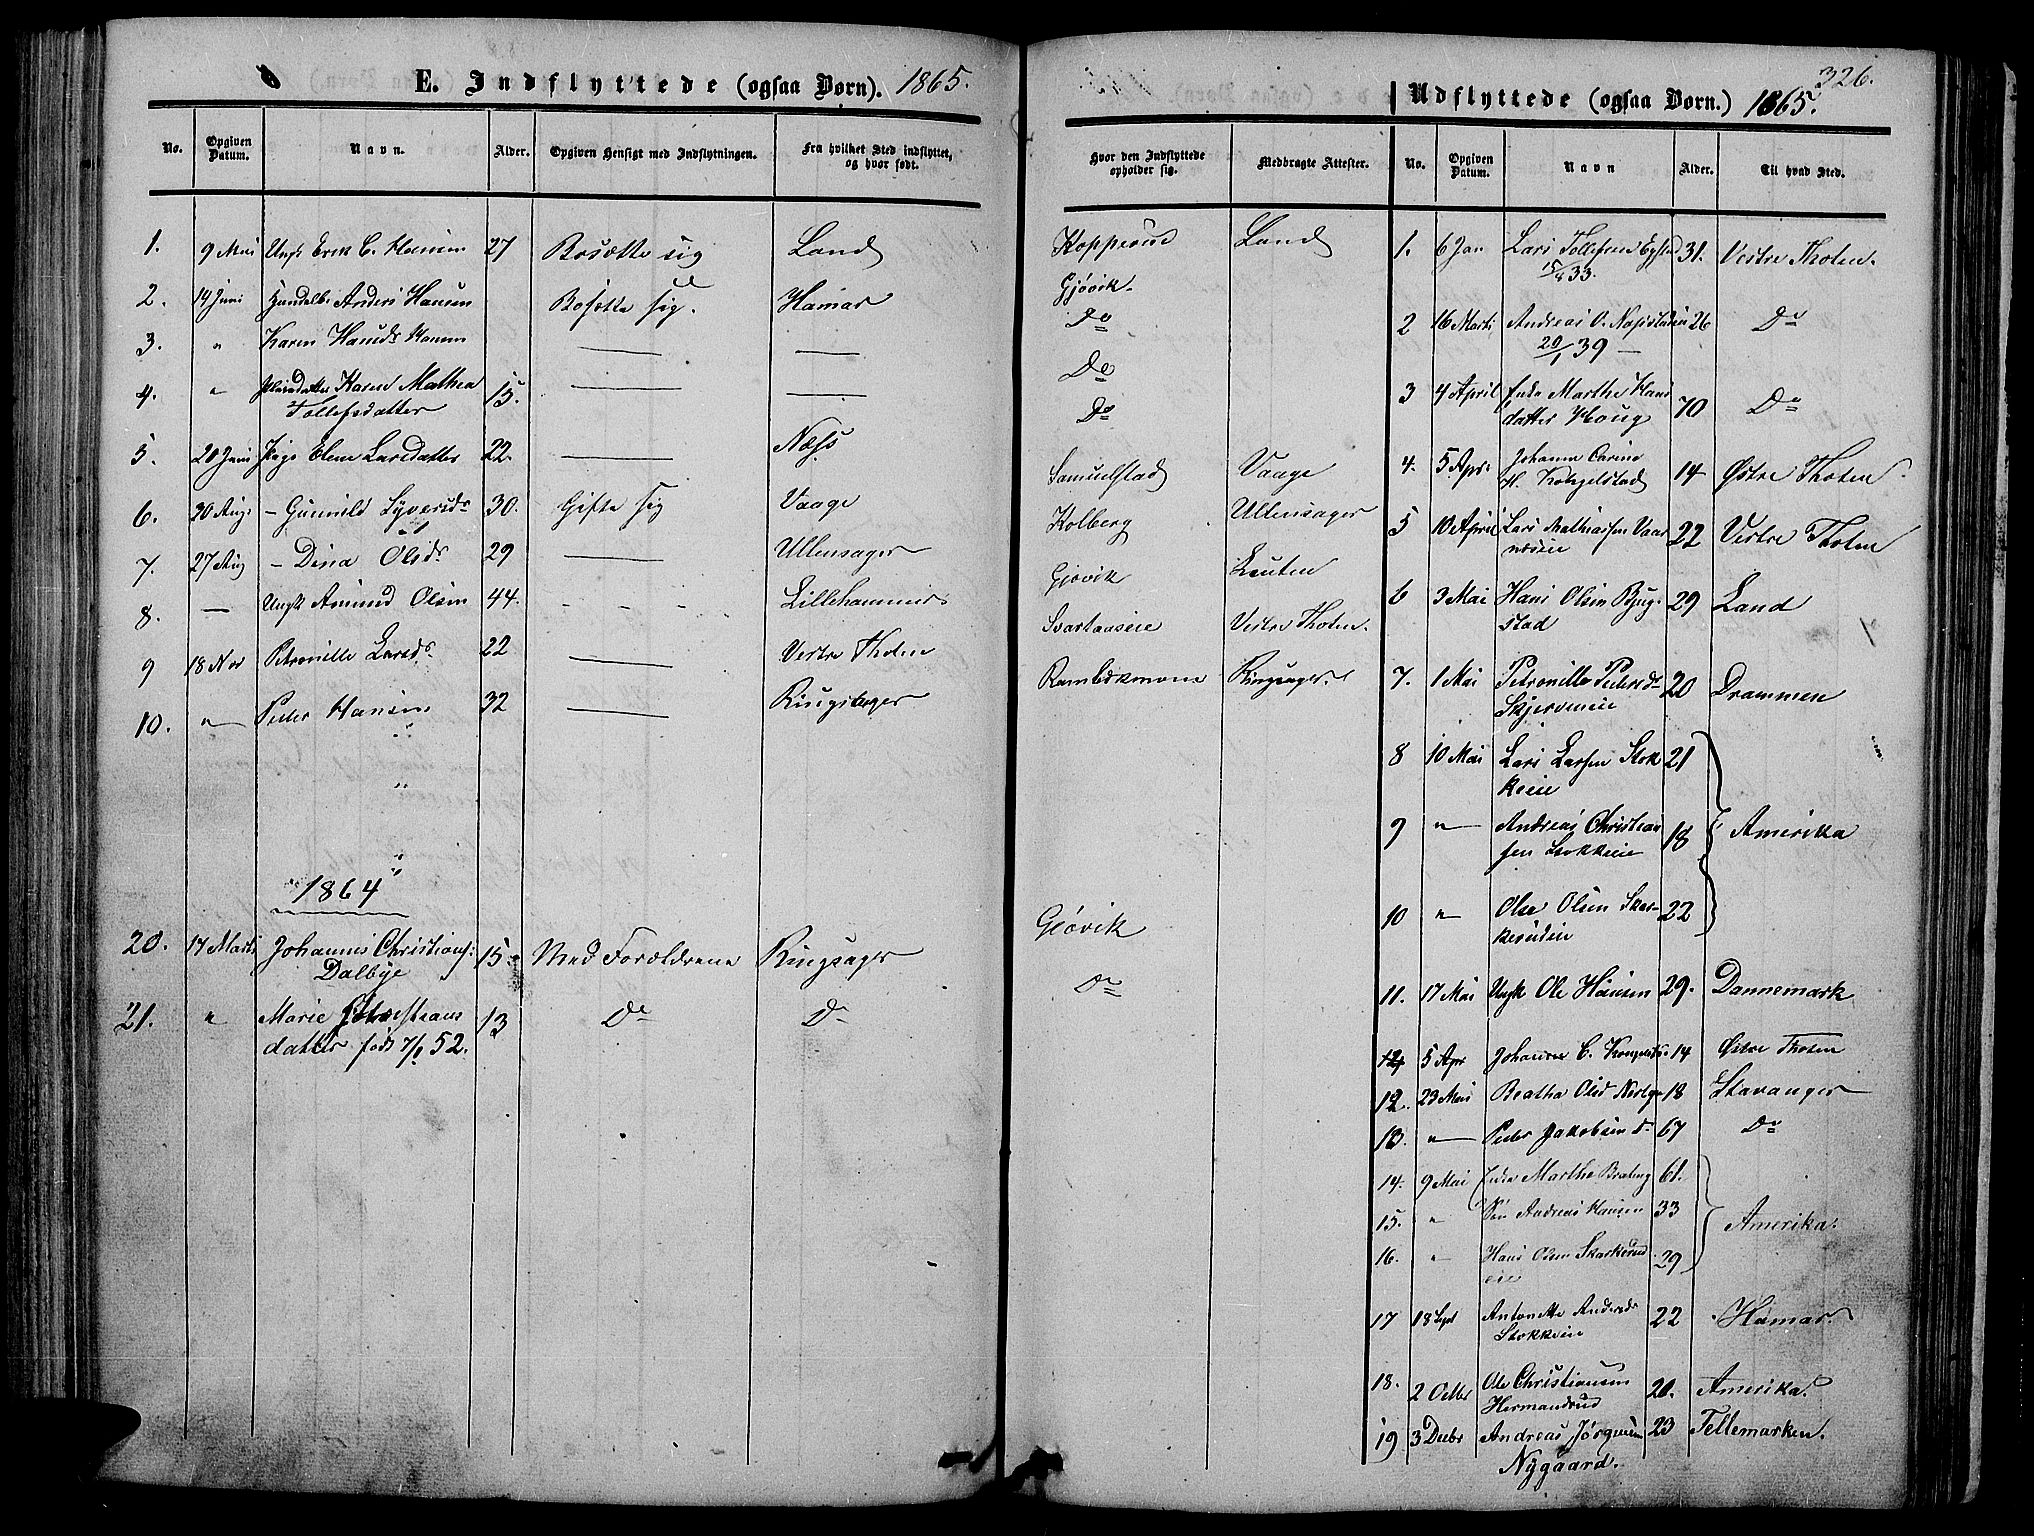 E. Indflyttede (ogsaa Børn). 1865.
No. Opgiven Datum. Navn. Alder. Opgiven Hensigt med Indflytningen. Fra hvilket Sted indflyttet, og hvor født.
1. 9 Mai Ungk Erik C. Hansen 27 Bosætte sig Land
2. 14 Juni Handelb. Anders Hansen Bosætte sig. Hamar
3. " Karen Hansds
4. " Karen Mathea 15.
Tollefsdatter
5. 20 Juni Pige Elene Larsdatter 22. Næss
6. 20 Aug. - Gunnild Syversds 30. Gifte sig Vaage
7. 27 Aug - Dina Olsds 29 Ullensager
8. — Ungk Amund Olsen 44. Lillehammer
9 18 Nov Petronille Larsds 22 Vestre Thoten
10. " Peder Hansen 32 Ringsager
1864
20. 17 Marts Johannes Christians: 15. Med Forældrene Ringsager
Dalbye
21. " Marie Christians 13 Do Do
datter født 52.
326.
Udflyttede (ogsaa Børn.) 1865.
Hvor den Indflyttede opholder sig. Medbragte Attester. No. Opgiven Datum. Navn Alder. Til hvad Sted.
Kopperud Land
Gjøvik.
Do
Do
Do
Samuelstad Vaage
Kolberg Ullensager
Gjøvik Løuten
Svartaaseie Vestre Thoten.
Ringsager.
Gjøvik
Do
1. 6 Jan Lars Tollefsen 31. Vestre Thoten.
33.
2 16 Marts Andreas O. 26 Do
39 —
3 4 April Enke Marthe Hans
datter Houg 70 Do
4. 5 Apr. Johanne Carine
H. Kongelstad 14 Østre Thoten.
5 10 April Lars Mathiassen 22 Vestre Thoten
6 3 Mai Hans Olsen Bjug-
stad 29 Land
7. 1 Mai Petronille Pedersds 20 Drammen
Skjerveneie
8 10 Mai Lars Larsen Stok 21
keeie
9 " Andreas Christian
sen Stokkeeie 18 Amerika
10 " Ole Olsen Skar- 22
kerudeie
11. 17 Mai Ungk Ole Hansen 29. Dannemark
12 5 Apr Johanne C. 14 Østre Thoten
12. 23 Mai Beatha Olsd 18 Stavanger
13. " Peder Jakobsen Do 67 Do
14. 9 Mai Enke Marthe 61.
15. " Søn Andreas Hansen 33 Amerika.
16. " Hans Olsen Skarkerud 29
eie
17 18 Sept Antonette Andersds 22 Hamar.
Stokkeeie
18. 2 Octbr Ole Christiansen 20. Amerika.
Hermandrud
19 3 Decbr Andreas Jørgensen 23 Tellemarken.
Nygaard.